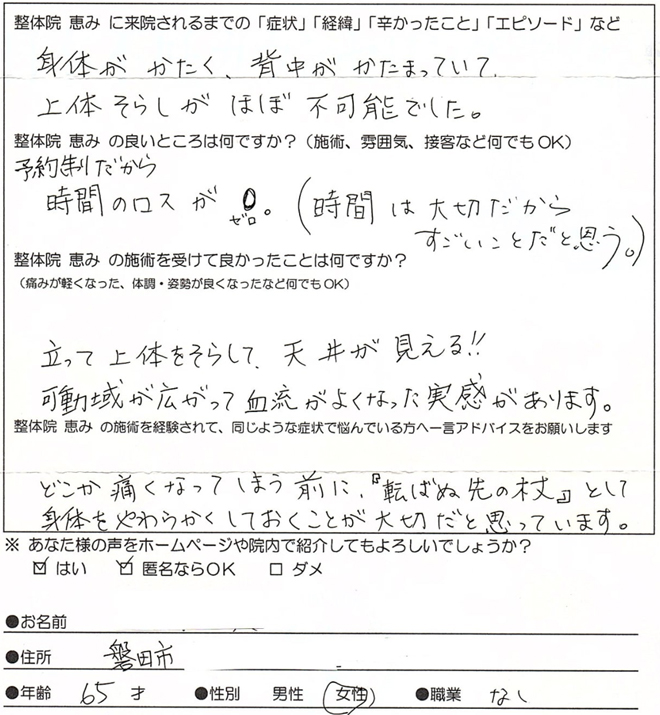 整体院 恵み に来院されるまでの「症状」「経緯」「辛かったこと」「エピソード」など
身体が かたく、背中が かたまっていて、
上体そらしが ほぼ 不可能でした。
整体院 恵み の良いところは何ですか？（施術、雰囲気、接客など何でもOK）
予約制だから
時間のロスが 0。（時間 は 大切だから
ゼロ
すごいことだと思う。）
整体院 恵み の施術を受けて良かったことは何ですか？
（痛みが軽くなった、体調・姿勢が良くなったなど何でもOK）
立って上体をそらして、天井が 見える!!
可動域が広がって血流がよくなった実感があります。
整体院 恵み の施術を経験されて、同じような症状で悩んでいる方へ一言アドバイスをお願いします
どこか 痛くなってしまう前に、『転ばぬ先の杖』として
身体をやわらかくしておくことが大切だと思っています。
※ あなた様の声をホームページや院内で紹介してもよろしいでしょうか？
☑ はい ☑ 匿名ならOK □ ダメ
●お名前
●住所 磐田市
●年齢 65 才 ●性別 男性 女性 ●職業 なし